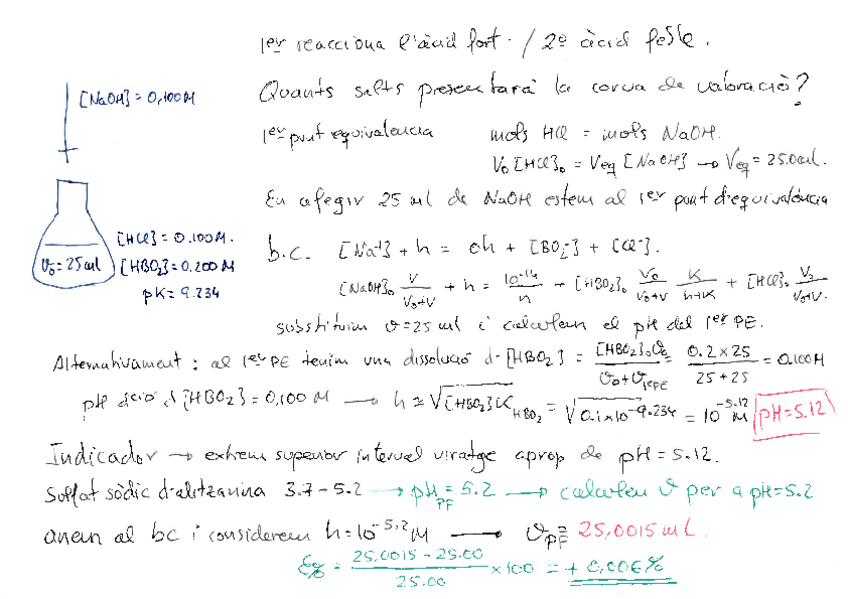 1er reacciona l'àcid fort. / 2º àcid feble.
[NaOH] = 0,100M
Quants salts presentarà la corva de valoració?
1er punt equivalencia mols HCl = mols NaOH.
V₀ [HCl]₀ = Veq [NaOH] → Veq = 25.0 mL.
En afegir 25 ml de NaOH estem al 1er punt d'equivalència
[HCl] = 0.100M.
V₀ = 25 ml
[HBO₂] = 0.200 M
pK = 9.234
b.c. [Na⁺] + h = oh + [BO₂⁻] + [Cl⁻].
[NaOH]₀ V/(V₀+V) + h = 10⁻¹⁴/h + [HBO₂]₀ V₀/(V₀+V) K/(h+K) + [HCl]₀ V₀/(V₀+V).
substituim v = 25 ml i calculem el pH del 1er PE.
Alternativament : al 1er PE tenim una dissolució d [HBO₂] = [HBO₂]₀V₀/(V₀+V1erPE) = 0.2 x 25/(25 + 25) = 0.100M
pH àcid d [HBO₂] = 0,100 M → h ≃ √([HBO₂]K HBO₂) = √(0.1 x 10^-9.234) = 10^-5.12 M pH = 5.12
Indicador → extrem superior interval viratge aprop de pH = 5.12.
Sulfat sòdic d'alitzarina 3.7 - 5.2 → pH PF = 5.2 → calculeu v per a pH = 5.2
anem al bc i considerem h = 10^-5,2 M → V PF = 25,0015 mL.
E% = (25.0015 - 25.00)/25.00 x 100 = + 0,006%